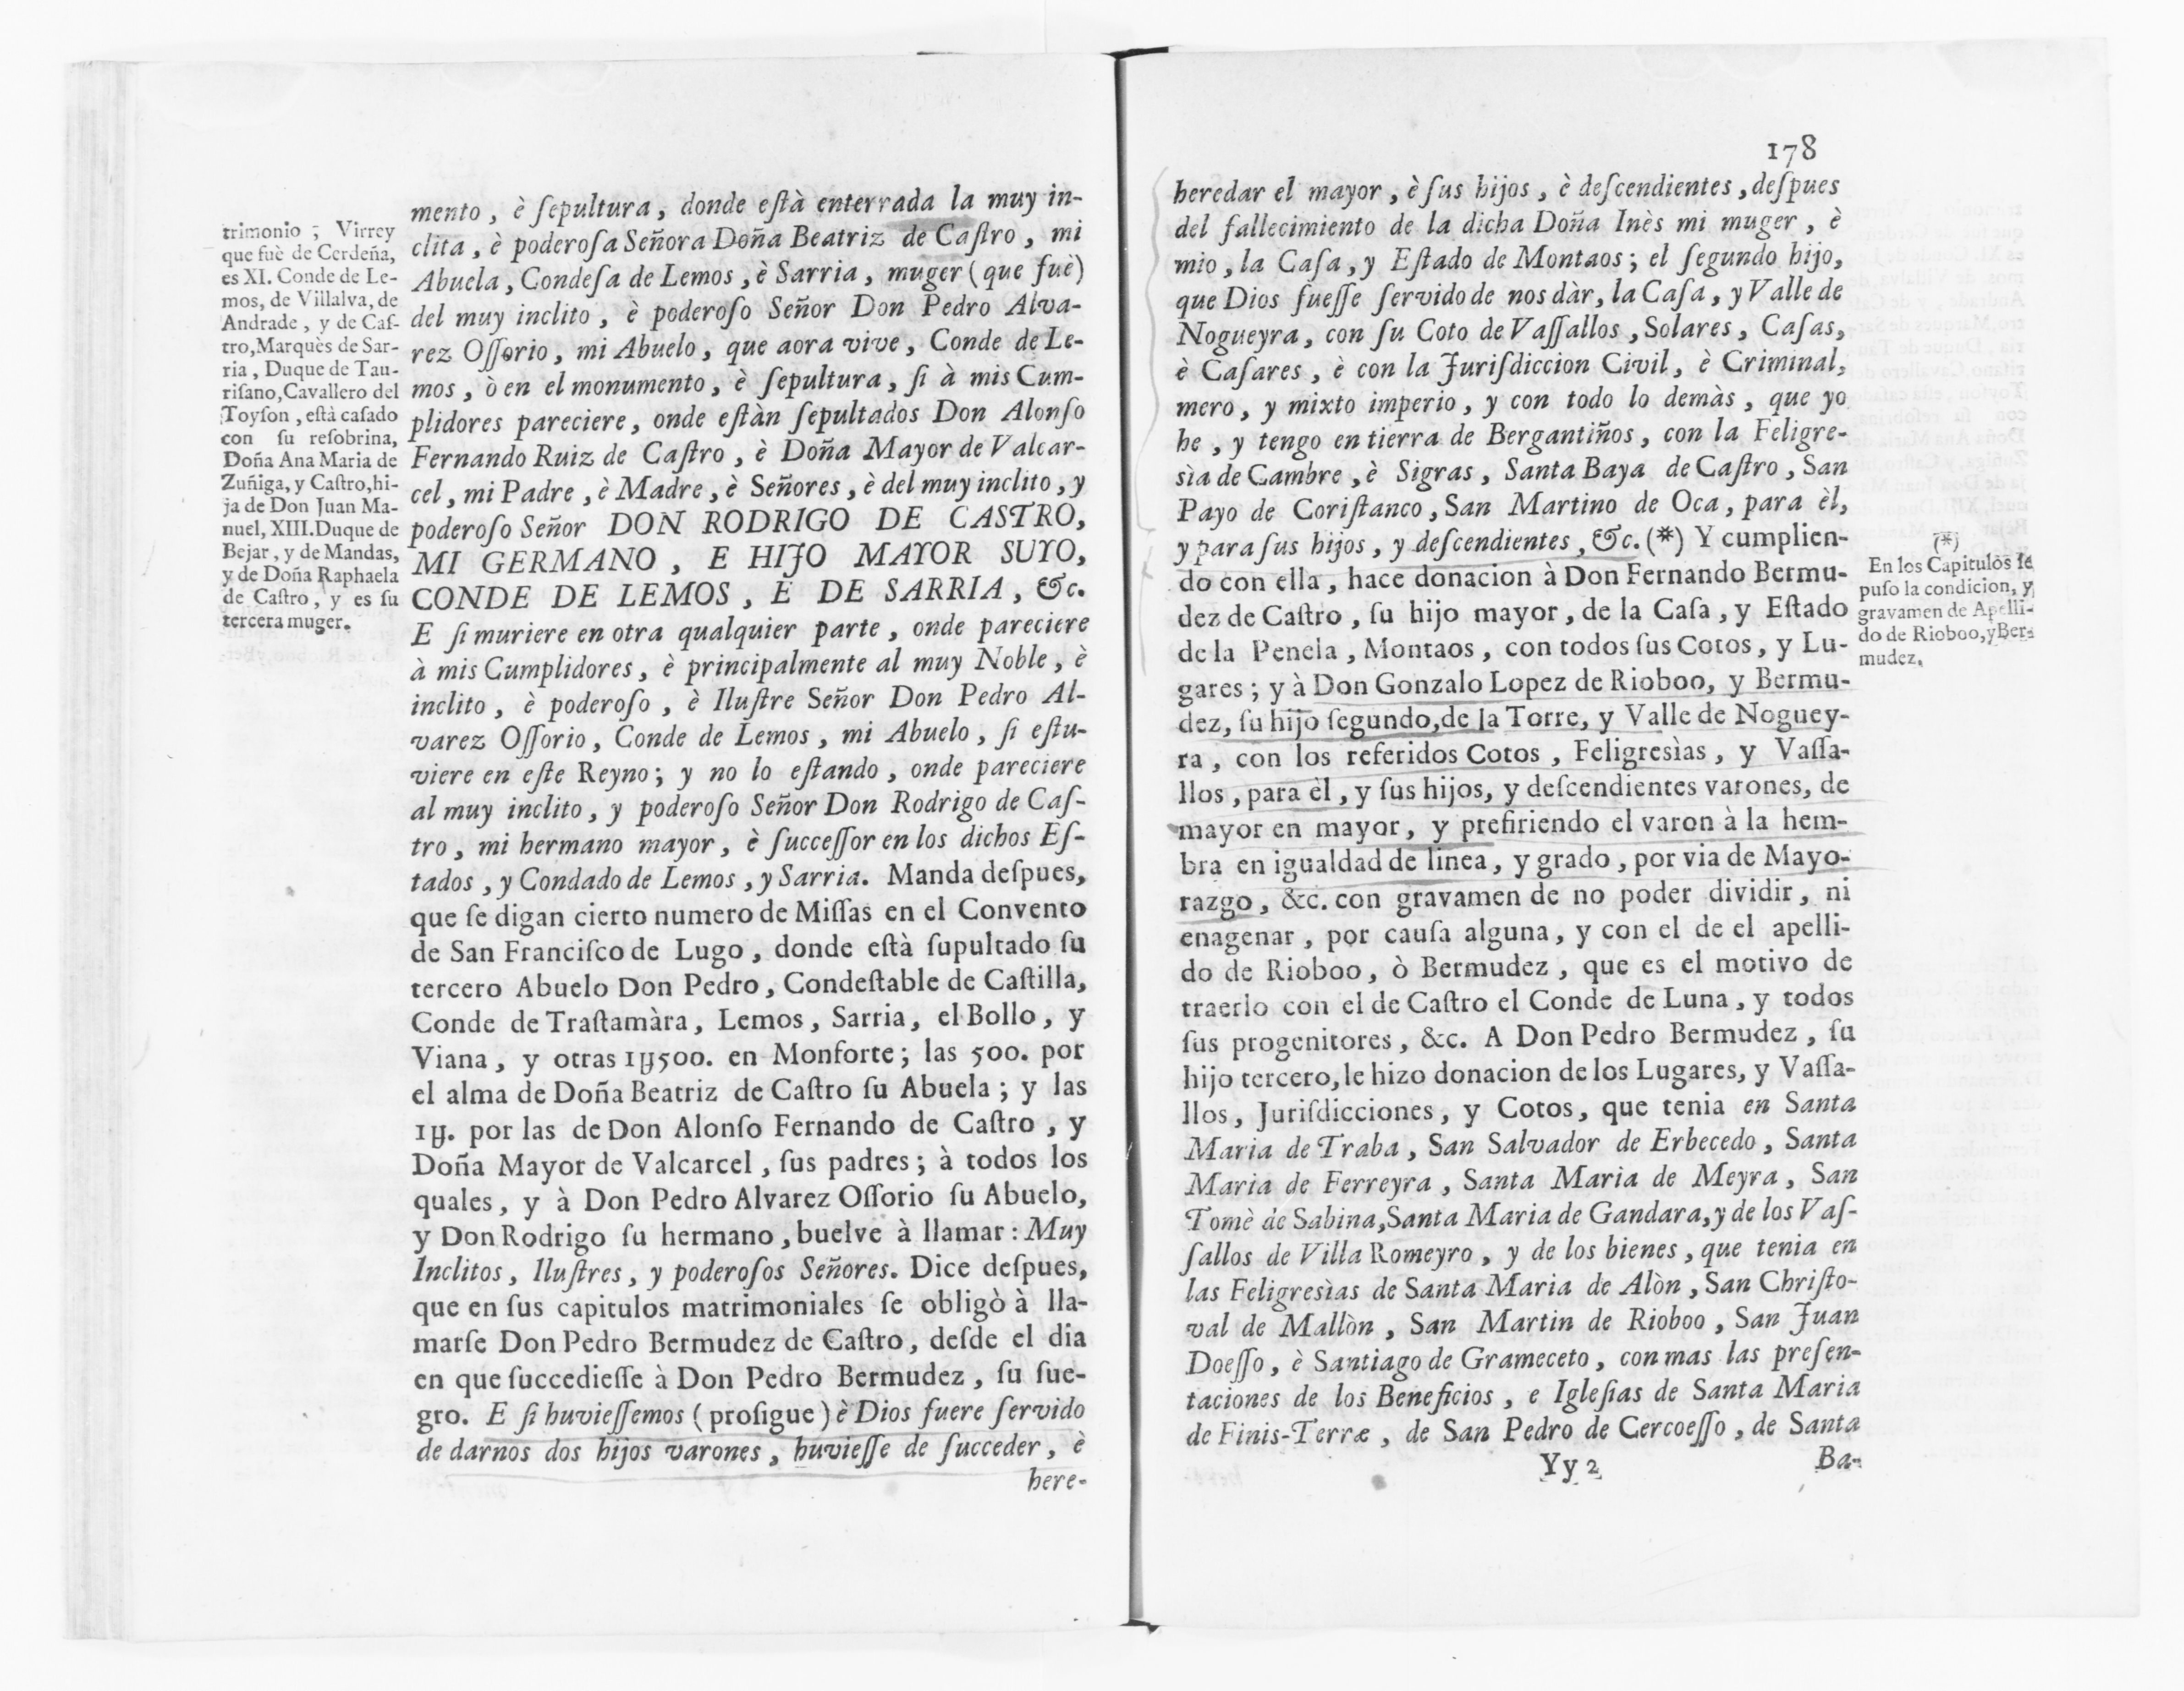 trimonio ; Virrey
que fuè de Cerdeña,
es XI. Conde de Le-
mos, de Villalva, de
Andrade, y de Caſ-
tro, Marquès de Sar-
ria, Duque de Tau-
riſano, Cavallero del
Toyſon, eſtà caſado
con ſu reſobrina,
Doña Ana Maria de
Zuñiga, y Caſtro, hi-
ja de Don Juan Ma-
nuel, XIII. Duque de
Bejar, y de Mandas,
y de Doña Raphaela
de Caſtro, y es ſu
tercera muger.
mento, è ſepultura, donde eſtà enterrada la muy in-
clita, è poderoſa Señora Doña Beatriz de Caſtro, mi
Abuela, Condeſa de Lemos, è Sarria, muger (que fuè)
del muy inclito, è poderoſo Señor Don Pedro Alva-
rez Oſſorio, mi Abuelo, que aora vive, Conde de Le-
mos, ò en el monumento, è ſepultura, ſi à mis Cum-
plidores pareciere, onde eſtàn ſepultados Don Alonſo
Fernando Ruiz de Caſtro, è Doña Mayor de Valcar-
cel, mi Padre, è Madre, è Señores, è del muy inclito, y
poderoſo Señor DON RODRIGO DE CASTRO,
MI GERMANO, E HIJO MAYOR SUYO,
CONDE DE LEMOS, E DE SARRIA, &c.
E ſi muriere en otra qualquier parte, onde pareciere
à mis Cumplidores, è principalmente al muy Noble, è
inclito, è poderoſo, è Iluſtre Señor Don Pedro Al-
varez Oſſorio, Conde de Lemos, mi Abuelo, ſi eſtu-
viere en eſte Reyno; y no lo eſtando, onde pareciere
al muy inclito, y poderoſo Señor Don Rodrigo de Caſ-
tro, mi hermano mayor, è ſucceſſor en los dichos Eſ-
tados, y Condado de Lemos, y Sarria. Manda deſpues,
que ſe digan cierto numero de Miſſas en el Convento
de San Franciſco de Lugo, donde eſtà ſupultado ſu
tercero Abuelo Don Pedro, Condeſtable de Caſtilla,
Conde de Traſtamàra, Lemos, Sarria, el Bollo, y
Viana, y otras 1ɥ500. en Monforte; las 500. por
el alma de Doña Beatriz de Caſtro ſu Abuela; y las
1ɥ. por las de Don Alonſo Fernando de Caſtro, y
Doña Mayor de Valcarcel, ſus padres; à todos los
quales, y à Don Pedro Alvarez Oſſorio ſu Abuelo,
y Don Rodrigo ſu hermano, buelve à llamar: Muy
Inclitos, Iluſtres, y poderoſos Señores. Dice deſpues,
que en ſus capitulos matrimoniales ſe obligò à lla-
marſe Don Pedro Bermudez de Caſtro, deſde el dia
en que ſuccedieſſe à Don Pedro Bermudez, ſu ſue-
gro. E ſi huvieſſemos (proſigue) è Dios fuere ſervido
de darnos dos hijos varones, huvieſſe de ſucceder, è
here-
178
heredar el mayor, è ſus hijos, è deſcendientes, deſpues
del fallecimiento de la dicha Doña Inès mi muger, è
mio, la Caſa, y Eſtado de Montaos; el ſegundo hijo,
que Dios fueſſe ſervido de nos dàr, la Caſa, y Valle de
Nogueyra, con ſu Coto de Vaſſallos, Solares, Caſas,
è Caſares, è con la Juriſdiccion Civil, è Criminal,
mero, y mixto imperio, y con todo lo demàs, que yo
he, y tengo en tierra de Bergantiños, con la Feligre-
sìa de Cambre, è Sigras, Santa Baya de Caſtro, San
Payo de Coriſtanco, San Martino de Oca, para èl,
y para ſus hijos, y deſcendientes, &c. (*) Y cumplien-
do con ella, hace donacion à Don Fernando Bermu-
dez de Caſtro, ſu hijo mayor, de la Caſa, y Eſtado
de la Penela, Montaos, con todos ſus Cotos, y Lu-
gares; y à Don Gonzalo Lopez de Rioboo, y Bermu-
dez, ſu hijo ſegundo, de la Torre, y Valle de Noguey-
ra, con los referidos Cotos, Feligresìas, y Vaſſa-
llos, para èl, y ſus hijos, y deſcendientes varones, de
mayor en mayor, y prefiriendo el varon à la hem-
bra en igualdad de linea, y grado, por via de Mayo-
razgo, &c. con gravamen de no poder dividir, ni
enagenar, por cauſa alguna, y con el de el apelli-
do de Rioboo, ò Bermudez, que es el motivo de
traerlo con el de Caſtro el Conde de Luna, y todos
ſus progenitores, &c. A Don Pedro Bermudez, ſu
hijo tercero, le hizo donacion de los Lugares, y Vaſſa-
llos, Juriſdicciones, y Cotos, que tenia en Santa
Maria de Traba, San Salvador de Erbecedo, Santa
Maria de Ferreyra, Santa Maria de Meyra, San
Tomè de Sabina, Santa Maria de Gandara, y de los Vaſ-
ſallos de Villa Romeyro, y de los bienes, que tenia en
las Feligresìas de Santa Maria de Alòn, San Chriſto-
val de Mallòn, San Martin de Rioboo, San Juan
Doeſſo, è Santiago de Grameceto, con mas las preſen-
taciones de los Beneficios, e Igleſias de Santa Maria
de Finis-Terræ, de San Pedro de Cercoeſſo, de Santa
Yy 2
Ba-
(*)
En los Capitulos ſe
puſo la condicion, y
gravamen de Apelli-
do de Rioboo, y Ber-
mudez.